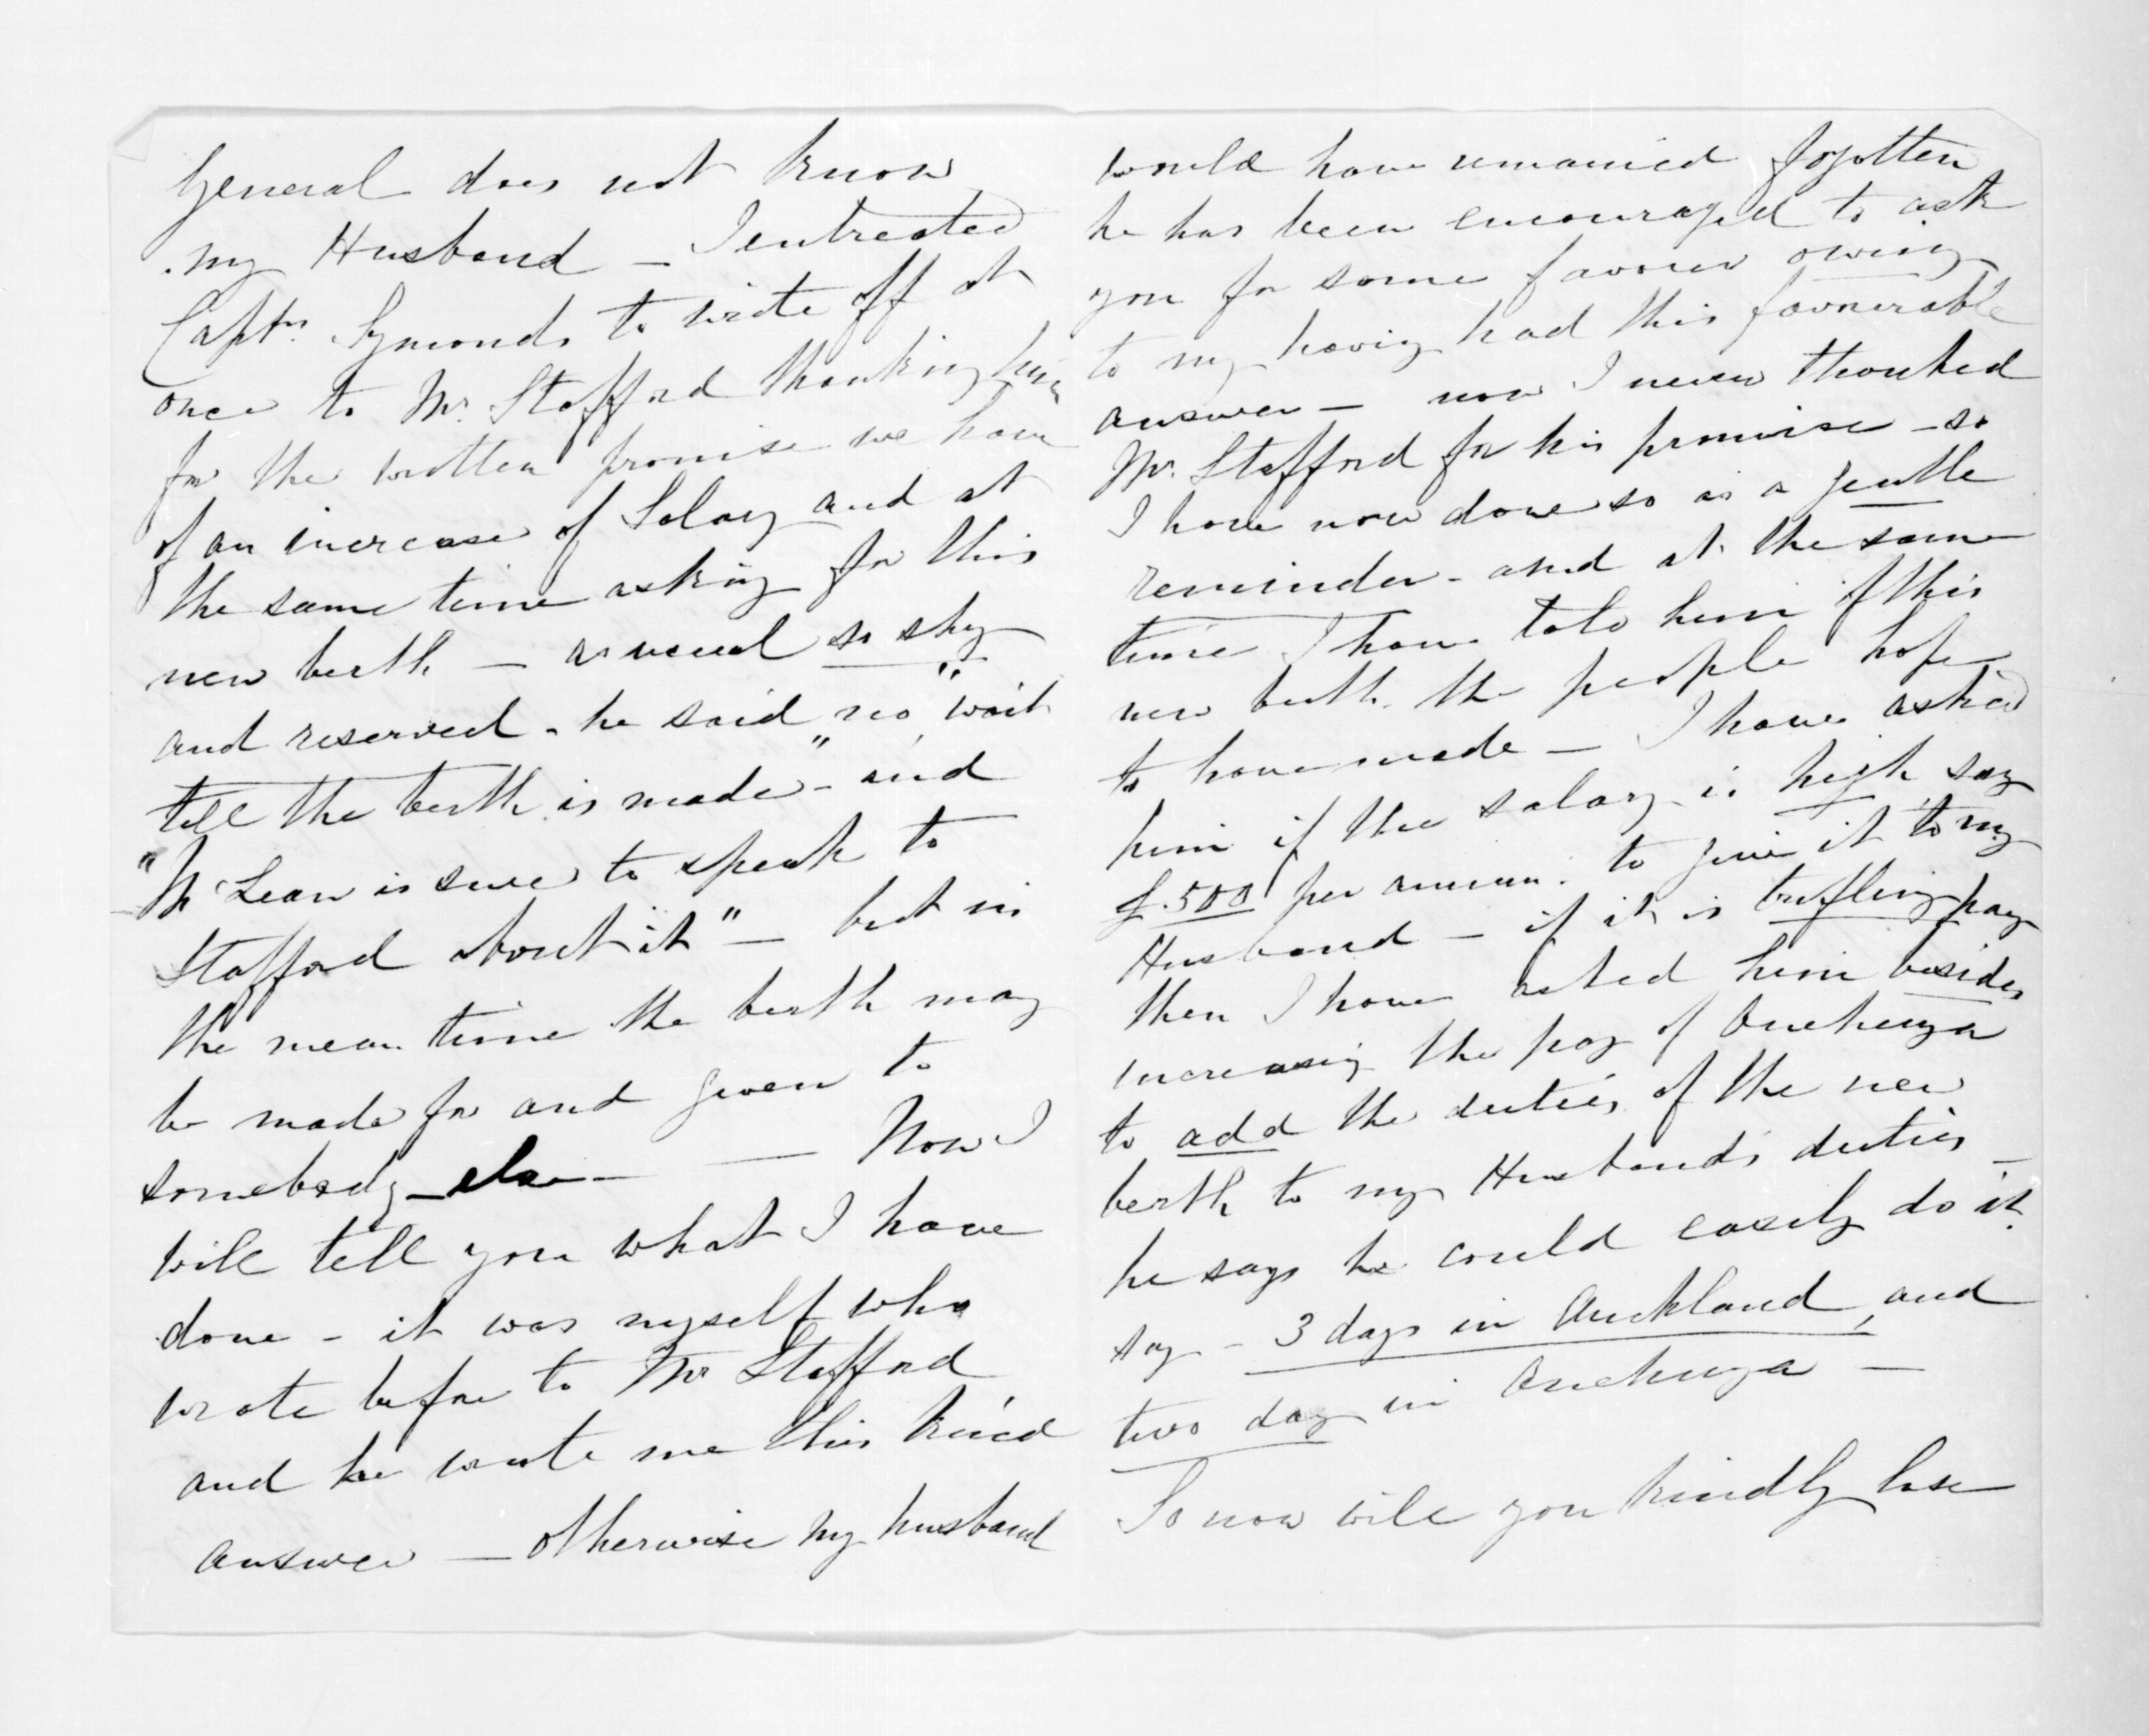 General does not know
my Husband — I entreated
Captn. Symonds to write off at
once to Mr. Stafford thanking him
for the written promise we have
of an increase of Salary and at
the same time asking for this
new berth — as usual so shy
and reserved - he said "no" "wait
till the berth is made" - and
"McLean is sure to speak to
Stafford about it" — but in
the mean time the berth may
be made for and given to
somebody else — — Now I
will tell you what I have
done - it was myself who
wrote before to Mr Stafford
and he wrote me this kind
answer — otherwise my husband
would have remained forgotten
he has been encouraged to ask
you for some favour owing
to my having had this favourable
answer — now I never thanked
Mr. Stafford for his promise - so
I have now done so as a gentle
reminder - and at the same
time I have told him of this
new berth the people hope
to have made — I have asked
him if the salary is high say
£.500 per annum. to give it to my
Husband — if it is trifling pay
then I have asked him besides
increasing the pay of Onehunga
to add the duties of the new
berth to my Husband's duties —
he says he could easily do it.
say - 3 days in Auckland, and
two day in Onehunga —
So now will you kindly lose